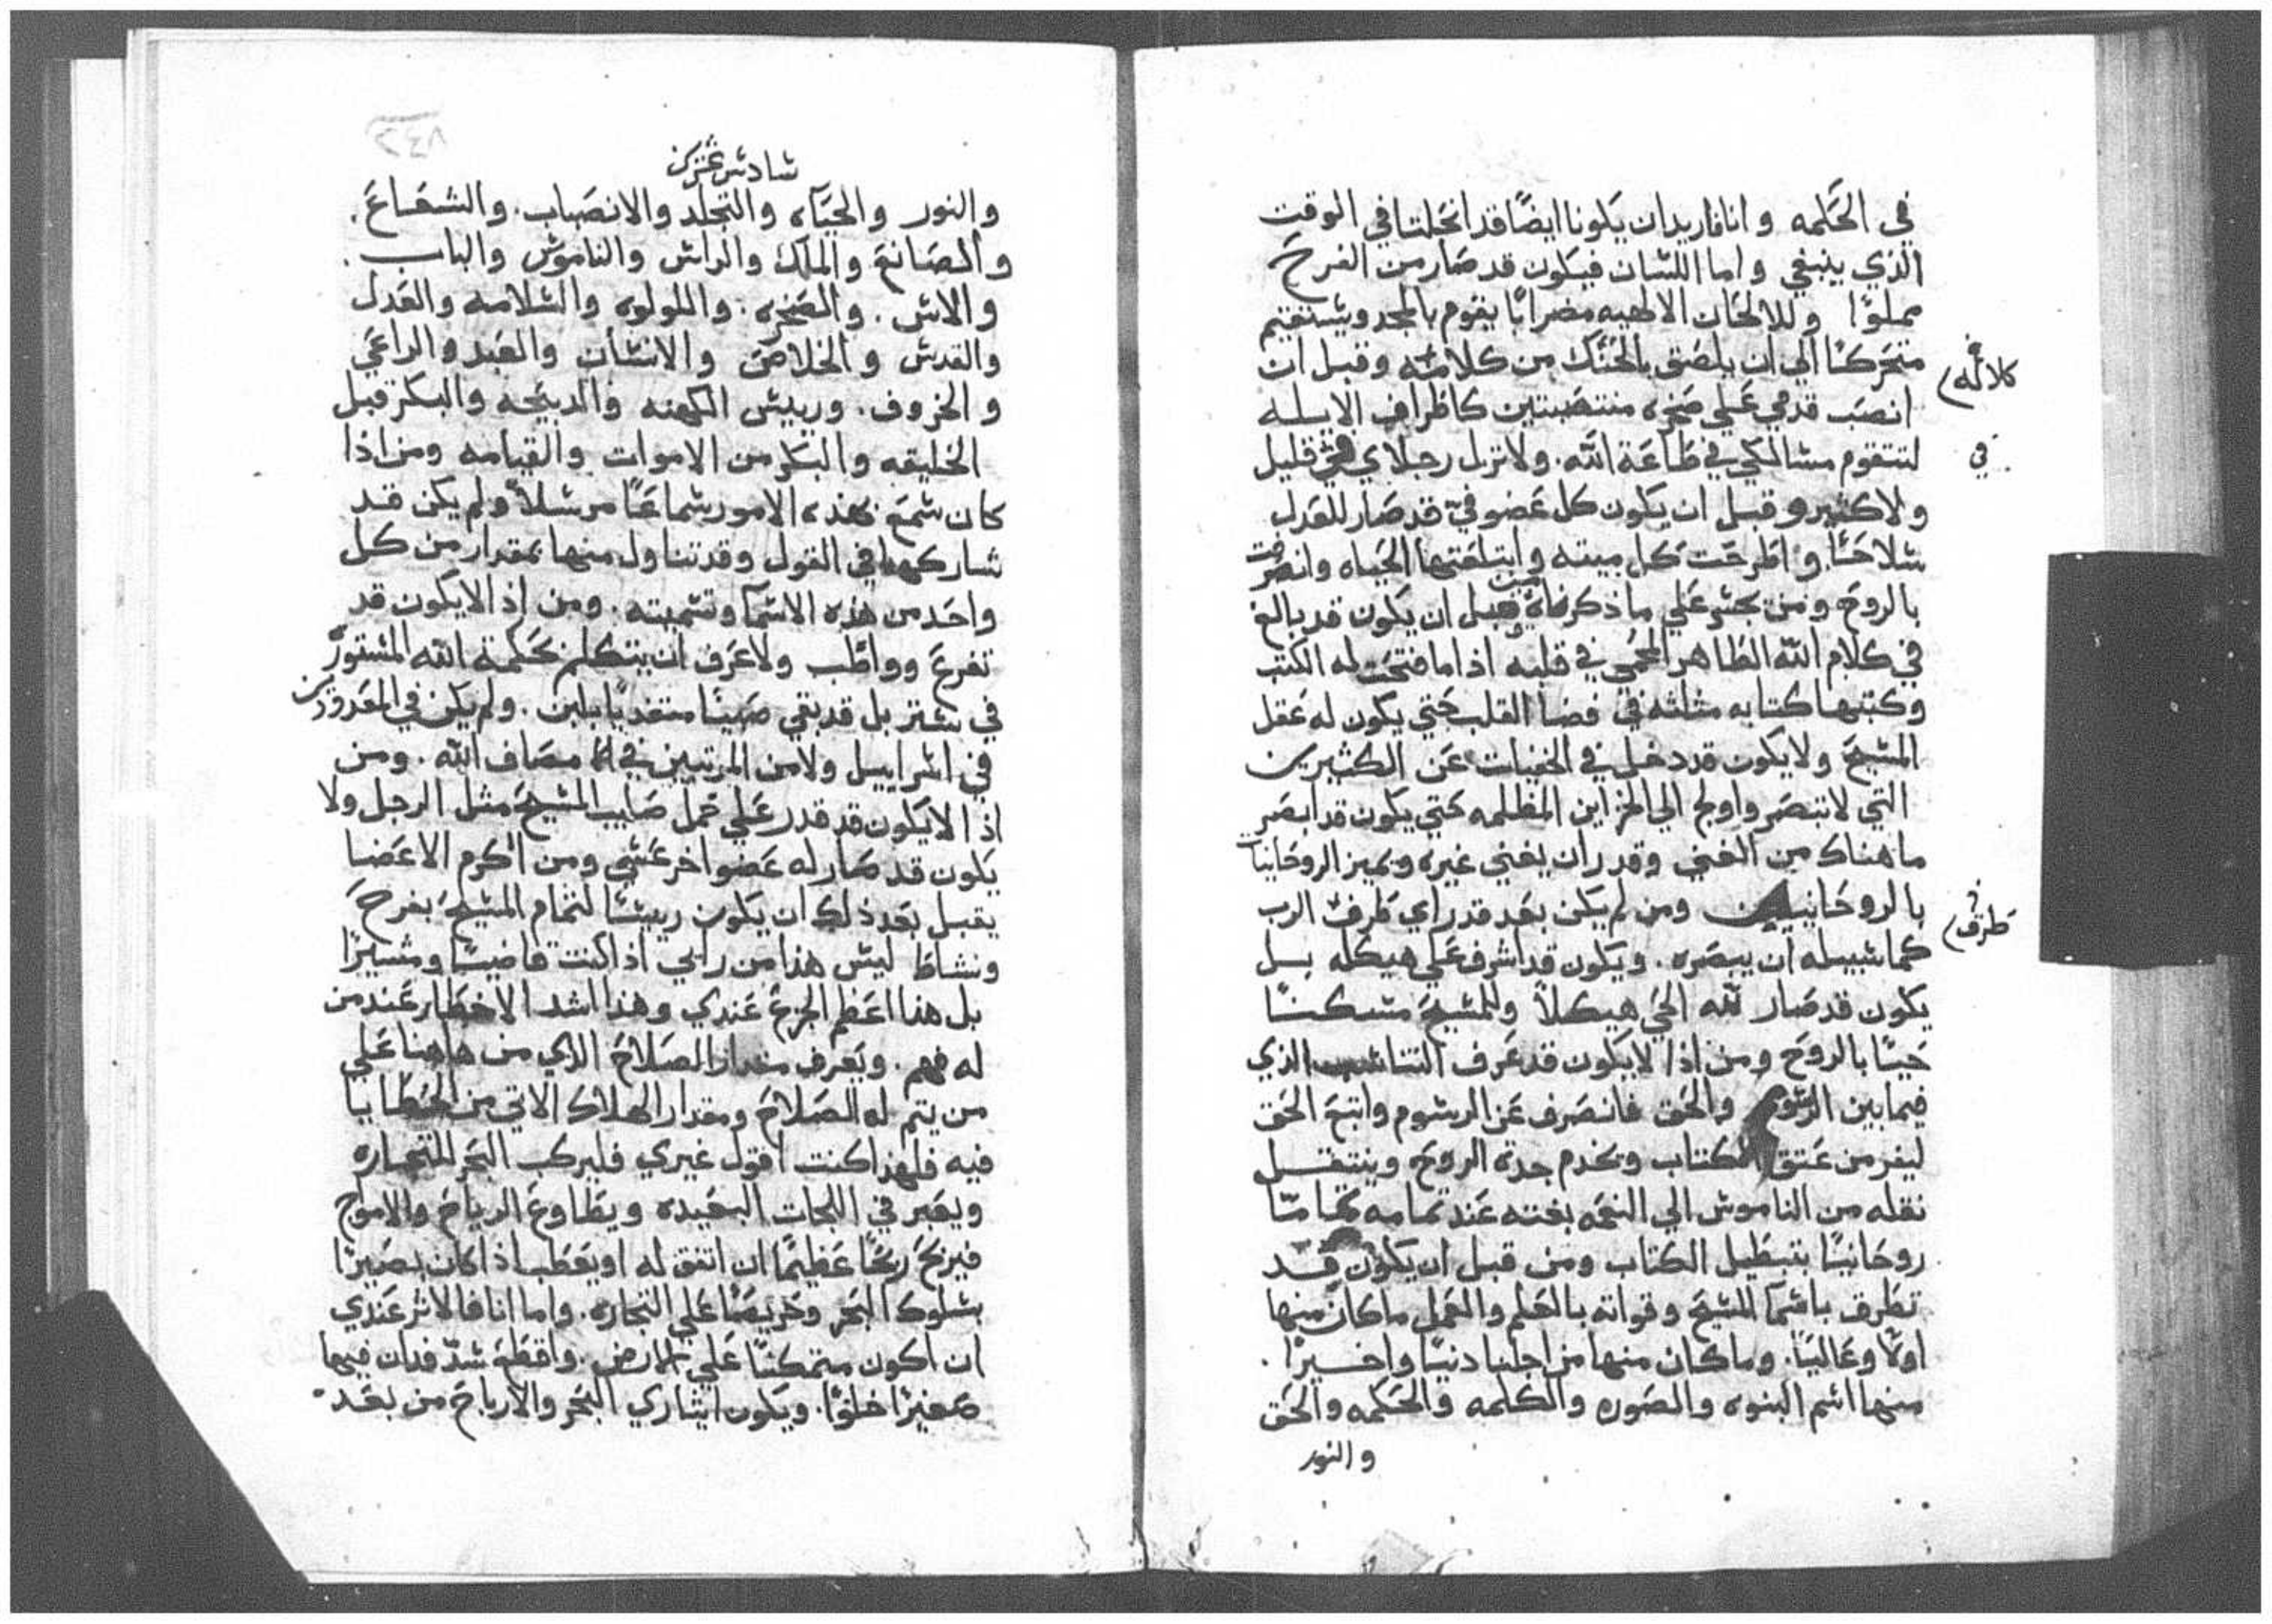 في الحكمه وانا فاريدان يكونا ايضًا قد انحلتا في الوقت
الذي ينبغي واما اللسان فيكون قد صار من الفرح
مملوًا وللالحان الالهيه مضرابًا يقوم بالمجد ويستقيم
متحركًا الي ان يلصق بالحنك من كلامه وقبل ان
انصب قدمي علي صخره منتصبتين كاظراف الايله
لتتقوم مسالكي في طاعة الله. ولا تزل رجلاي قليل
ولا كثير وقبل ان يكون كل عضو فيّ قد صار للعدل
سلاحًا. واطرحت كل ميته وابتلعتها الحياه وانصرفت
بالروح ومن يجسر علي ما ذكرناه من قبل ان يكون قد بالغ
في كلام الله الطاهر المحمي في قلبه اذا ما فتحت له الكتب
وكتبها كتابه مثلثه في فضا القلب حتي يكون له عقل
المسيح ولا يكون قد دخل في الخفيات عن الكثيرين
التي لا تبتصر واولج الي الخزاين المظلمه حتي يكون قد ابصر
ما هناك من الغني وقدر ان يغني غيره ويميز الروحانيات
بالروحانيين ومن لم يكن بعد قد راي طرف الرب
كما سبيله ان يبصره. ويكون قد اشرف علي هيكله بل
يكون قد صار لله الحي هيكلاً وللمسيح مسكنًا
حيًا بالروح ومن اذا لا يكون قد عرف التناسب الذي
فيما بين الرسوم والحق فانصرف عن الرسوم واتبع الحق
ليفر من عتق الكتاب ويخدم جدة الروح وينتقل
نقله من الناموس الي النعمه بغته عند تمامه تمامًا
روحانيًا بتبطيل الكتاب ومن قبل ان يكون قد
تطرق باسما المسيح وقواته بالعلم والعمل ما كان منها
اولاً وعاليًا. وما كان منها من اجلنا دنيًا واخيرًا.
منها اسم البنوه والصوره والكلمه والحكمه والحق
والنور
كلامه
في
طرف
سادس عشرين
والنور والحياه والتجلد والانصباب. والشعاع.
والصانع والملك والراس والناموس والباب.
والاس. والصخره. واللولوه والسلامه والعدل
والقدس والخلاص والانسان والعبد والراعي
والخروف. ورييس الكهنه والدبيحه والبكر قبل
الخليقه والبكر من الاموات والقيامه ومن اذا
كان سمع هذه الامور سماعًا مرسلاً ولم يكن قد
شاركها في القول وقد تناول منها بمقدار من كل
واحد من هذه الاسما وتسميته. ومن اذ الا يكون قد
تفرع وواظب ولا عرف ان يتكلم بحكمة الله المستورة
في ستر بل قد بقي صبيًا متغديًا بلبن. ولم يكن في المعدودين
في اسراييل ولا من المرتبين في مصاف الله. ومن
اذ الا يكون قد قدر علي حمل صليب المسيح مثل الرجل ولا
يكون قد صار له عضو اخر عسي ومن اكرم الاعضا
يقبل بعد ذلك ان يكون رييسًا لتمام المسيح بفرح
ونشاط ليس هذا من رايي اذا كنت قاضيًا ومشيرًا
بل هذا اعظم الجزع عندي وهذا اشد الاخطار عند من
له فهم. ويعرف مقدار الصلاح الذي من هاهنا علي
من يتم له الصلاح ومقدار الهلاك الاتي من الخطايا
فيه فلهذا كنت اقول غيري فليركب البحر للتجاره
ويعبر في اللجات البعيده ويطاوع الرياح والامواج
فيربح ربحًا عظيمًا ان اتفق له او يعطب اذا كان بصيرًا
بسلوك البحر وحريصًا علي التجاره. واما انا فالاثر عندي
ان اكون متمكنًا علي الارض. واقطع شدّ فدان فيها
صغيرًا خلوًا. ويكون ايثاري البحر والارباح من بعد